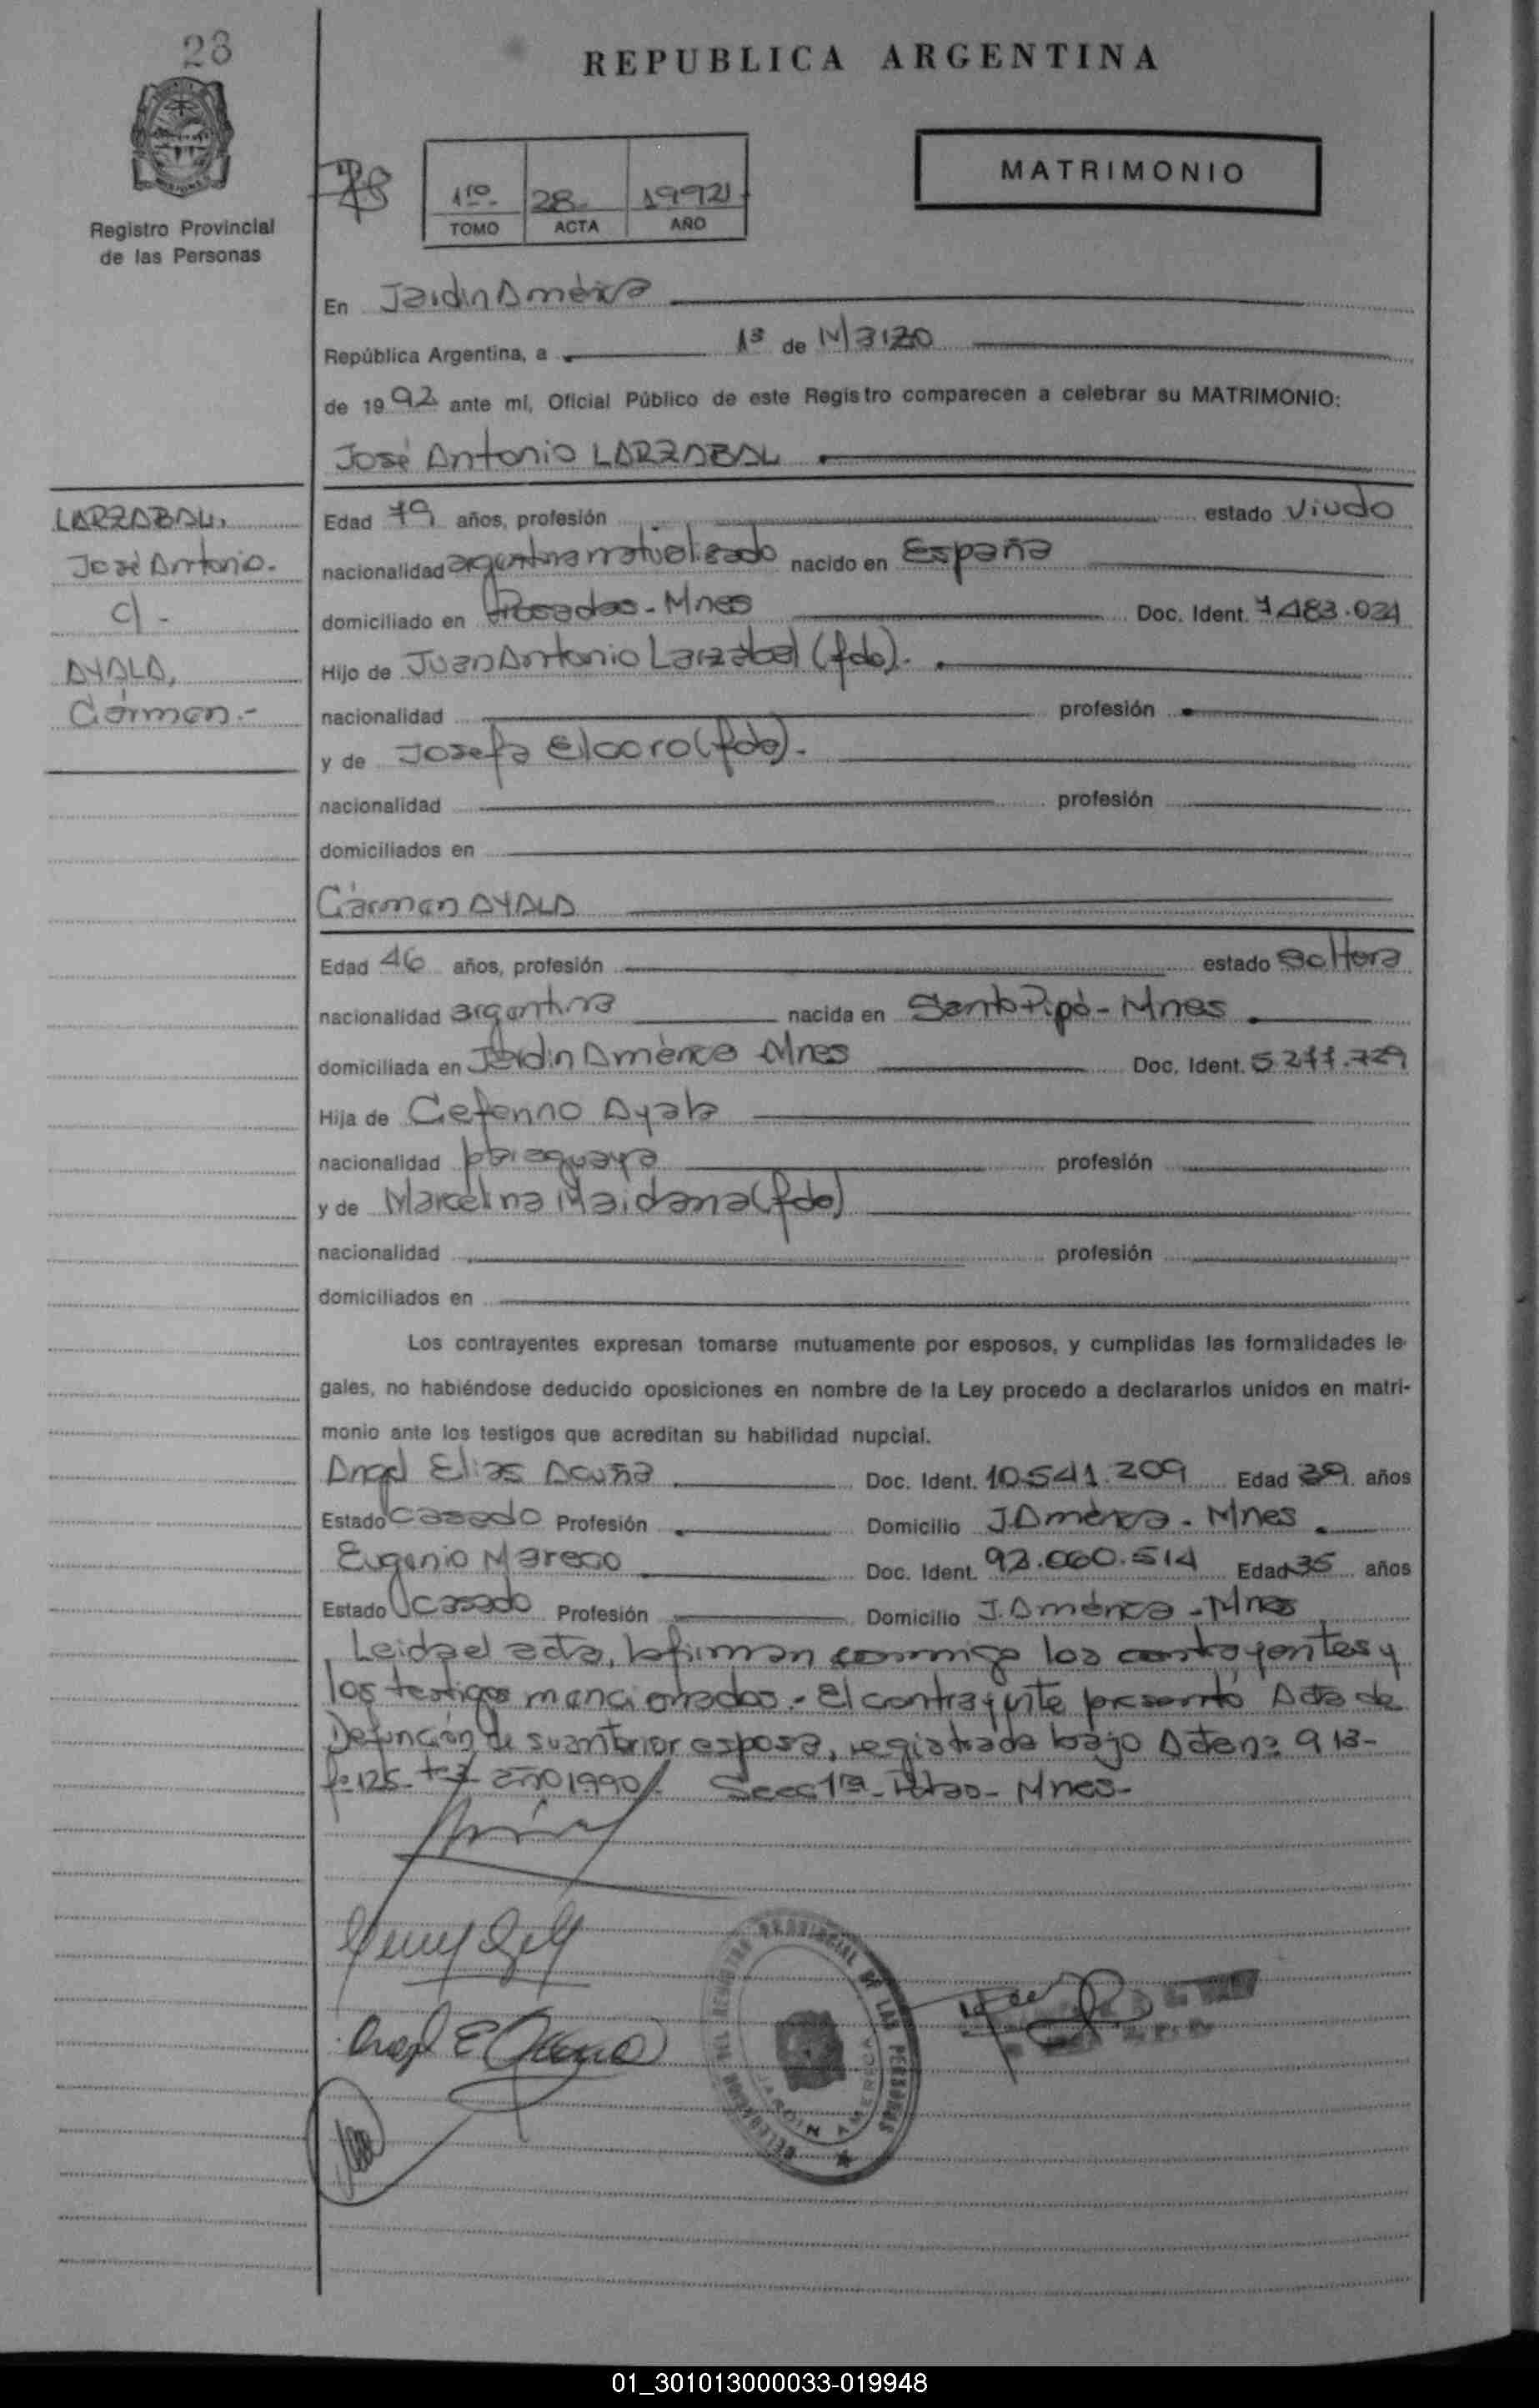 28
REPUBLICA ARGENTINA
MATRIMONIO
1ro. 28. 1992
TOMO ACTA AÑO
Registro Provincial
de las Personas
En Jardin América
República Argentina, a 13 de Marzo
de 1992 ante mí, Oficial Público de este Registro comparecen a celebrar su MATRIMONIO:
José Antonio LARZABAL
LARZABAL,
José Antonio.
c/ -
AYALA,
Cármen.-
Edad 79 años, profesión estado Viudo
nacionalidad argentina naturalizado nacido en España
domiciliado en Posadas - Mnes Doc. Ident. 7.483.021
Hijo de Juan Antonio Larzabal (fdo).
nacionalidad profesión
y de Josefa Elcoro (fda).
nacionalidad profesión
domiciliados en
Cármen AYALA
Edad 46 años, profesión estado Soltera
nacionalidad argentina nacida en Santo Pipó - Mnes
domiciliada en Jardin América Mnes Doc. Ident. 5.277.729
Hija de Ceferino Ayala
nacionalidad paraguaya profesión
y de Marcelina Maidana (fda)
nacionalidad profesión
domiciliados en
Los contrayentes expresan tomarse mutuamente por esposos, y cumplidas las formalidades le-
gales, no habiéndose deducido oposiciones en nombre de la Ley procedo a declararlos unidos en matri-
monio ante los testigos que acreditan su habilidad nupcial.
Angel Elias Acuña Doc. Ident. 10.541.209 Edad 39 años
Estado Casado Profesión Domicilio J. América - Mnes
Eugenio Mareco Doc. Ident. 92.060.514 Edad 35 años
Estado Casado Profesión Domicilio J. América - Mnes
Leida el acta, la firman conmigo los contrayentes y
los testigos mencionados.- El contrayente presentó Acta de
Defunción de su anterior esposa, registrada bajo Acta nº 913-
fº 125- tº 3- año 1990/. Secc 1ra - Mnes-
Angel E Acuña
DELEGACION DEL REGISTRO PROVINCIAL DE LAS PERSONAS
JARDIN AMERICA
01_301013000033-019948